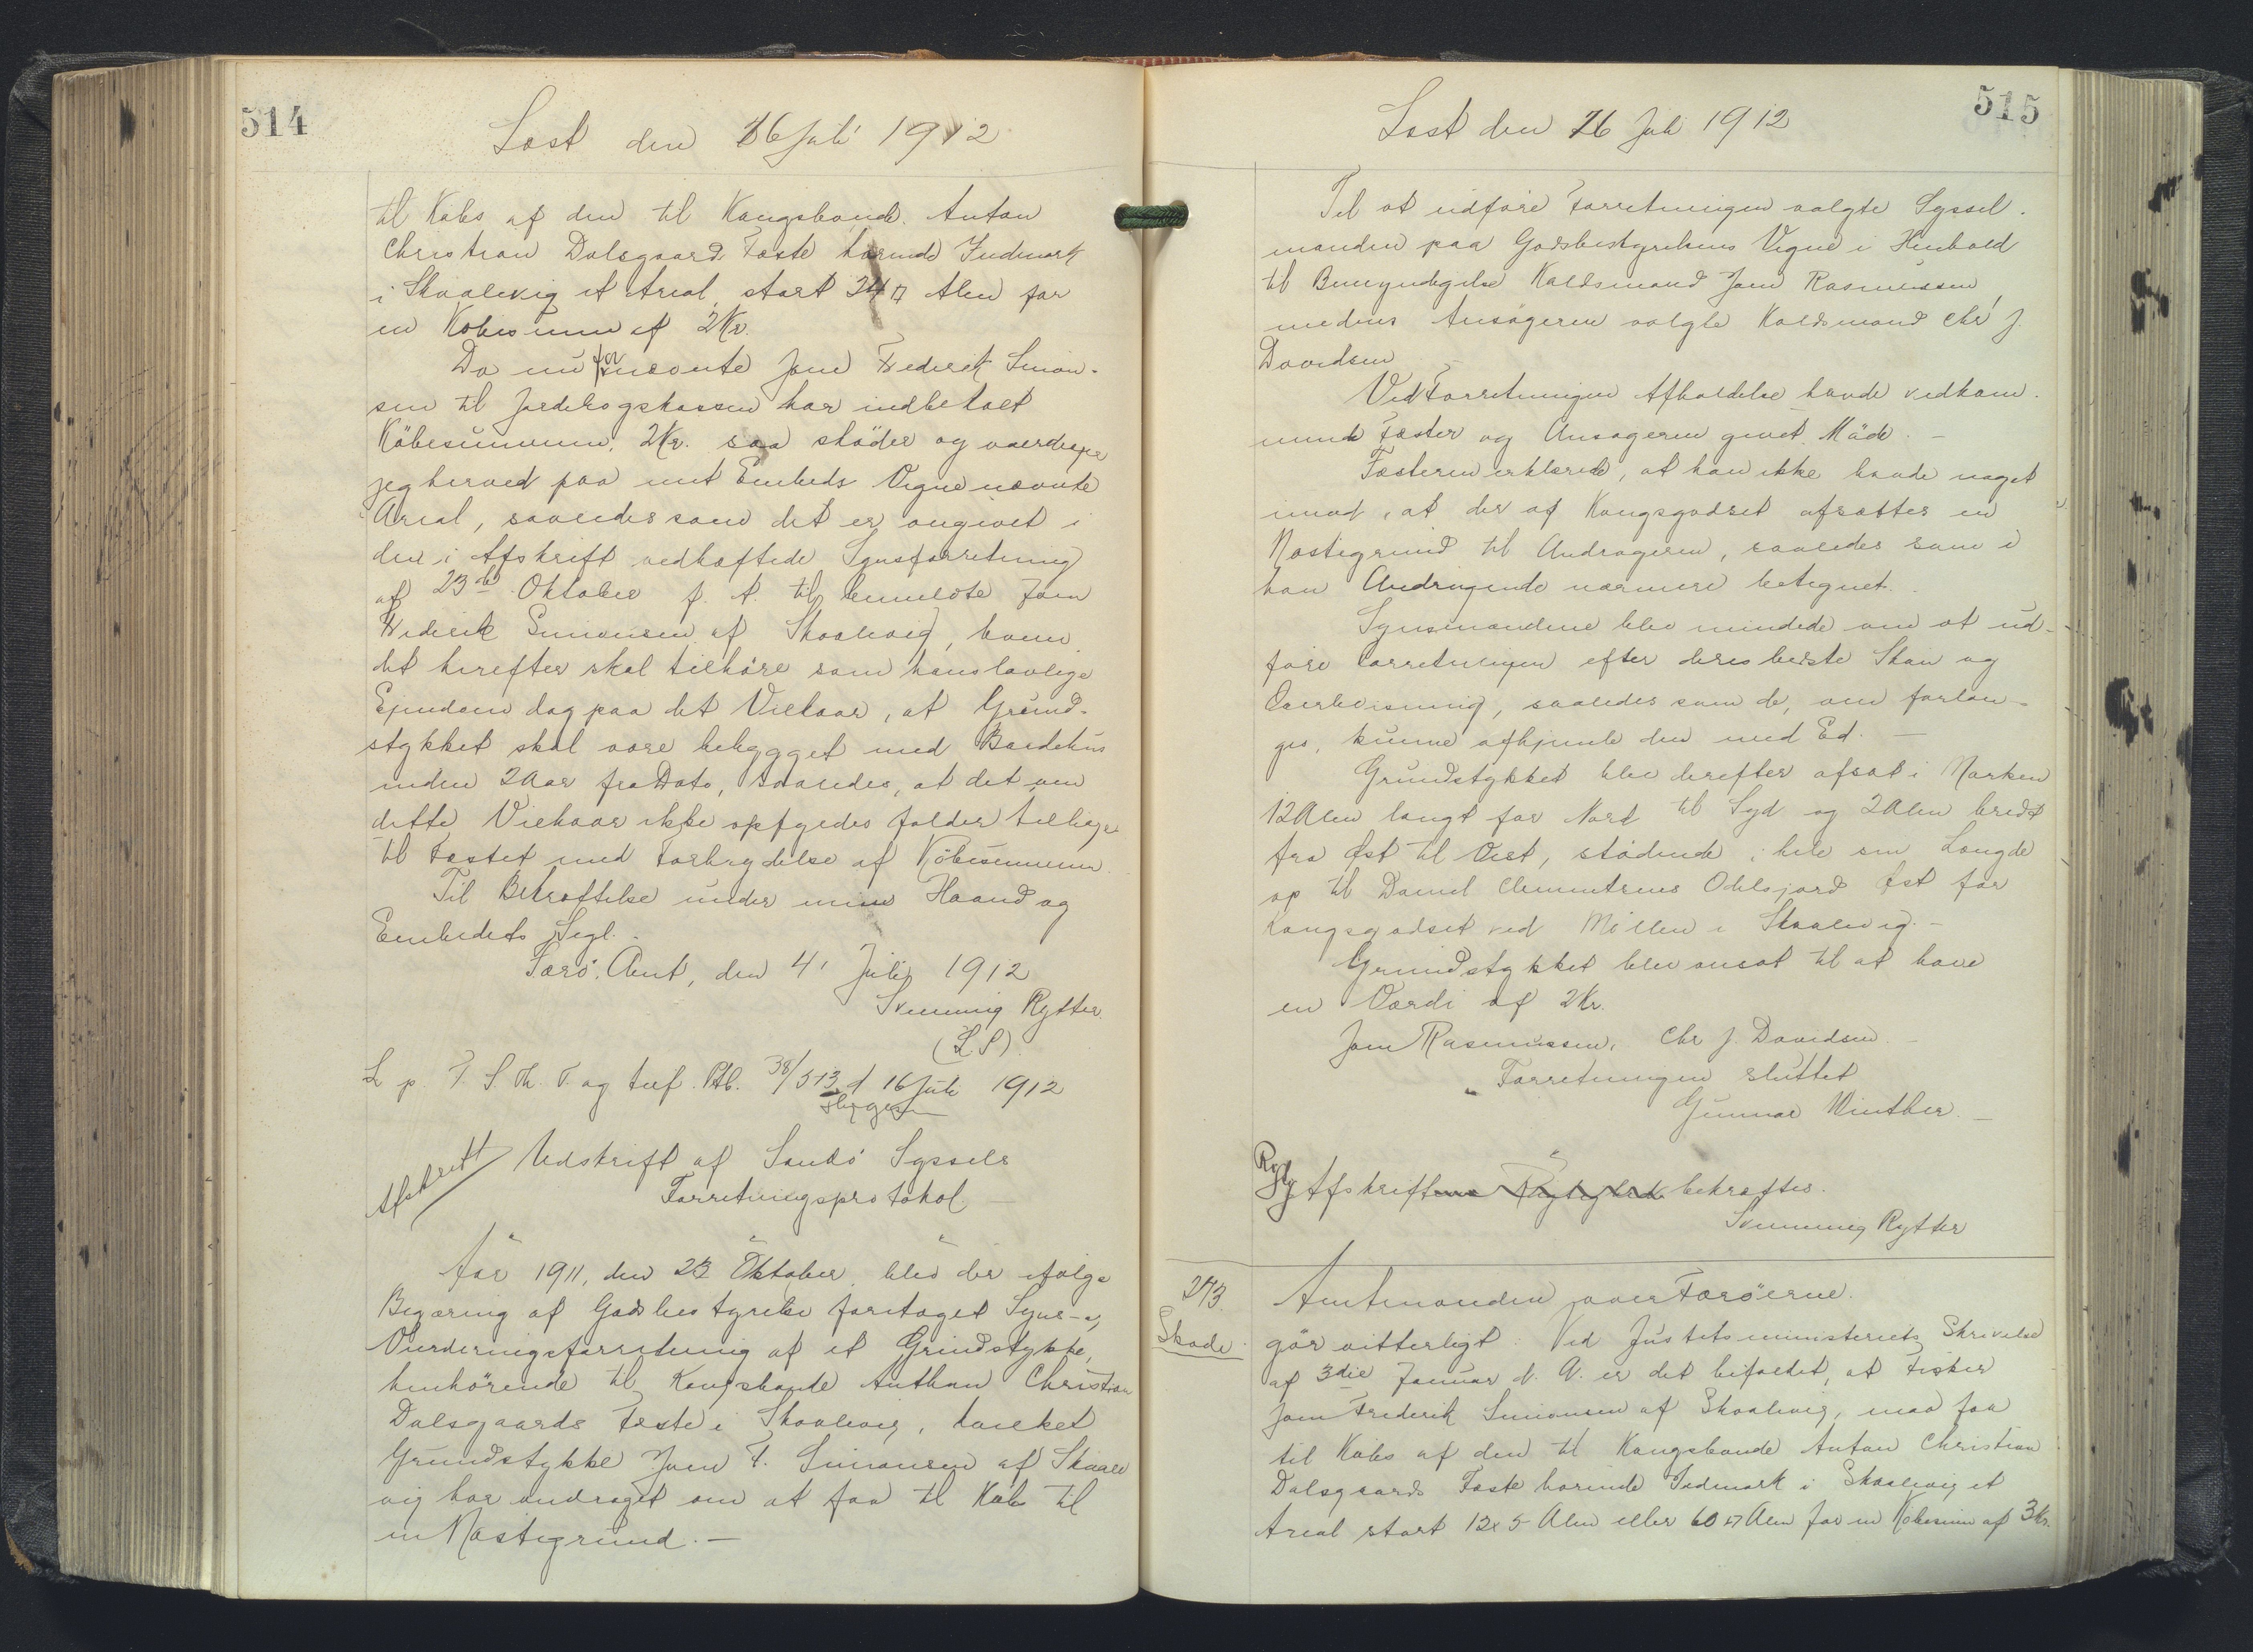 514
Læst den 16 Juli 1912
til Købs af den til Kongsbonde Anton
Christian Dalsgaards Fæste hørende Indmark
i Skaalevig et Areal, stort 24 □ Alen for
en Købesum af 2 Kr.
Da nu fornævnte Joen Frederik Simon-
sen til Jordebogskassen har indbetalt
Købesummen, 2 Kr. saa skøder og overdrager
jeg herved paa mit Embeds Vegne nævnte
Areal, saaledes som det er angivet i
den i Afskrift vedhæftede Synsforretning
af 23de Oktober f. A. til bemeldte Joen
Frederik Simonsen af Skaalevig, hvem
det herefter skal tilhøre som hans lovlige
Ejendom dog paa det Vilkaar, at Grund-
stykket skal være bebygget med Baadehus
inden 2 Aar fra Dato, saaledes, at det om
dette Vilkaar ikke opfyldes falder tilbage
til Fæstet med Fortabelse af Købesummen.
Til Bekræftelse under min Haand og
Embedets Segl.
Færø Amt, den 4' Juli 1912
Svenning Rytter
(L S).
L p. F. S. Th. F. og Ptb. 38/513 d 16 Juli 1912
Afskrift
Udskrift af Sandø Syssels
Forretningsprotokol
Aar 1911, den 23 Oktober blev der ifølge
Begæring af Godsbestyrelse foretaget Syns- og
Vurderingsforretning af et Grundstykke,
henhørende til Kongsbonde Anthon Christian
Dalsgaards Fæste i Skaalevig, hvilket
Grundstykke Joen F. Simonsen af Skaale
vig har andraget om at faa til Købs til
en Nøstegrund. —
515
Læst den 16 Juli 1912
Til at udføre Forretningen valgte Syssel-
manden paa Godsbestyrelsens Vegne i Henhold
til Bemyndigelse Kaldsmand Joen Rasmussen,
medens Ansøgeren valgte Kaldsmand Chr J.
Davidsen
Ved Forretningen Afholdelse havde vedkom-
mende Fæster og Ansøgeren givet Møde. —
Fæsteren erklærede, at han ikke havde noget
imod, at der af Kongsgodset afsættes en
Nøstegrund til Andrageren, saaledes som i
han Andragende nærmere betegnet.
Synsmændene blev mindede om at ud-
føre Forretningen efter deres bedste Skøn og
Overbevisning, saaledes som de, om forlan-
ges, kunne afhjemle den med Ed. —
Grundstykket blev derefter afsat i Marken
12 Alen langt for Nord til Syd og 2 Alen bredt
fra Øst til Vest, stødende i hele sin Længde
op til Daniel Clementsens Odelsjord Øst for
Kongsgodset ved Møllen i Skaalevig. —
Grundstykket blev ansat til at have
en Værdi af 2 Kr.
Joen Rasmussen, Chr J. Davidsen
Forretningen sluttet
Gunnar Winther. —
Afskriftens bekræftes.
Svenning Rytter
273.
Skøde.
Amtmanden over Færøerne.
gør vitterligt: Ved Justitsministeriets Skrivelse
af 3die Januar d. A. er det bifaldet, at Fisker
Joen Frederik Simonsen af Skaalevig, maa faa
til Købs af den til Kongsbonde Anton Christian
Dalsgaards Fæste hørende Indmark i Skaalevig et
Areal stort 12 x 5 Alen eller 60 □ Alen for en Købesum af 3 Kr.